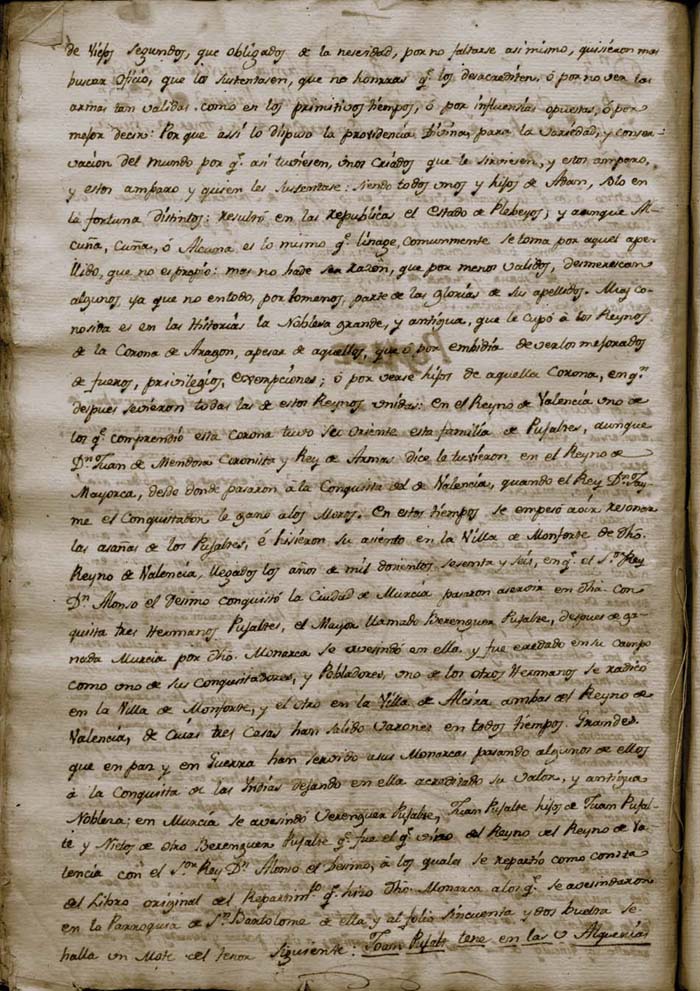 de Viejos Segundos, que obligados de la nesesidad, por no faltarse asi mismo, quisieron mas
buscar oficio, que los sustentasen, que no honrras q.e los desacrediten, ó por no ver las
armas tan validas como en los primitivos tiempos, ó por influencias opuestas, ó por
mejor decir: Por que assi lo dispuso la providencia Divina, para la variedad, y conser-
vacion del mundo por q.e asi tuviesen, unos criados que le sirviesen, y estos amparo,
y estos amparo y quien les sustentase: siendo todos unos y hijos de Adan, solo en
la fortuna distintos: resultó en las republicas el estado de Plebeyos; y aunque Al-
cuña, Cuña, ó Alcuna es lo mismo q.e linage, comunmente se toma por aquel ape-
llido, que no es propio: mas no hade ser razon, que por menos validos, desmerescan
algunos, ya que no entodo, por lomenos, parte de las glorias de sus apellidos. Muy co-
nosida es en las Historias la Noblesa grande, y antigua, que le cupó à los Reynos
de la Corona de Aragon, apesar de aquellos, que ó por embidia de verlos mejorados
de fueros, privilegios, exempciones; ó por verse hijos de aquella Corona, en q.n
despues se vieron todas las de estos Reynos unidas: En el Reyno de Valencia uno de
los q.e comprendió esta corona tuvo su Oriente esta familia de Pujaltes, aunque
D.n Juan de Mendosa Coronista y Rey de Armas dice la tuvieron en el Reyno de
Mayorca, desde donde pasaron à la Conquista del de Valencia, quando el Rey D.n Jay-
me el Conquistador le ganó alos Moros. En estos tiempos se empesó aoir resonar
las asañas de los Pujaltes, é hisieron su asiento en la Villa de Monforte de dho.
Reyno de Valencia, llegados los años de mil dosientos sesenta y seis, en q.e el S.or Rey
D.n Alonso el Desimo conquistó la Ciudad de Murcia pasaron aservir en dha. con-
quista tres Hermanos Pujaltes, el Mayor llamado Berenguer Pujalte, despues de ga-
nada Murcia por dho. Monarca se avesindó en ella, y fue eredado en su campo
como uno de sus Conquistadores, y Pobladores, uno de los otros Hermanos se radicó
en la Villa de Monforte, y el otro en la Villa de Alcira, ambas del Reyno de
Valencia, de cuias tres Casas han salido varones en todos tiempos. Grandes
que en paz y en Guerra han servido asus Monarcas pasando algunos de ellos
à la Conquista de las Indias dejando en ella acreditado su valor, y antigua
Noblesa; en Murcia se avesindó Verenguer Pujalte, Juan Pujalte hijos de Juan Pujal-
te y Nietos de otro Berenguer Pujalte q.e fue el q.e vino del Reyno del Reyno de Va-
lencia con el S.or Rey D.n Alonso el Desimo, à los quales se repartió como consta
del Libro original del Repartim.to q.e hizo dho. Monarca alos q.e se avesindaron
en la Parroquia de S.n Bartolome de ella y al folio sincuenta y dos buelta se
halla un Mote del tenor siguiente: Joan Pujalt tene en las V Alquerias